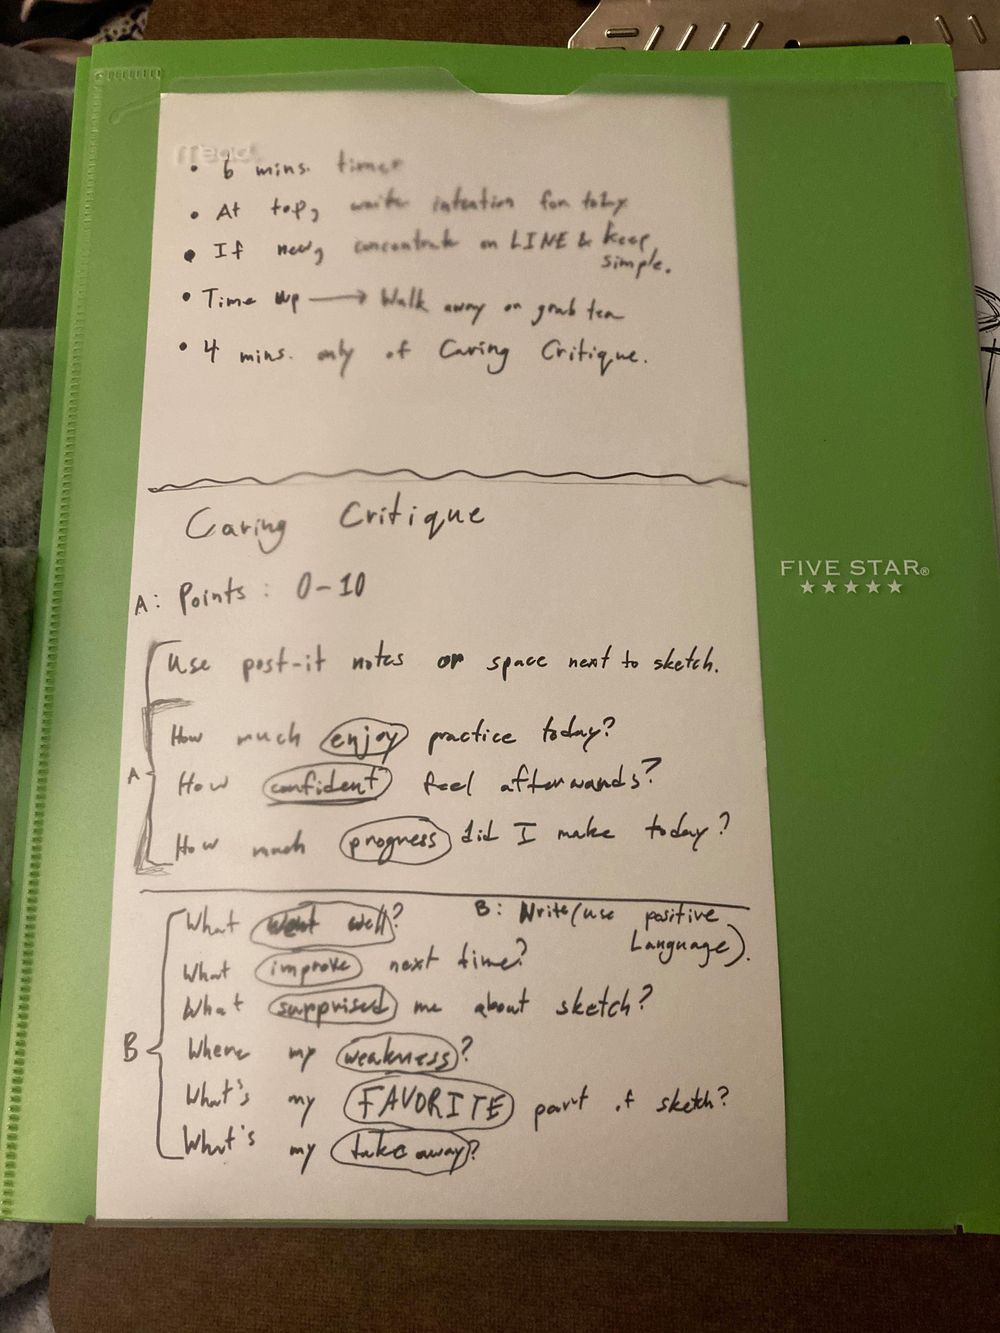 mead
• 6 mins. timer
• At top, write intention for today
• If new, concentrate on LINE & keep
simple.
• Time up → Walk away or grab tea
• 4 mins. only of Caring Critique.
Caring Critique
A: Points: 0-10
Use post-it notes or space next to sketch.
How much enjoy practice today?
A
How confident feel afterwards?
How much progress did I make today?
What went well?
B: Write (use positive
Language).
What improve next time?
What surprised me about sketch?
B
Where my weakness?
What's my FAVORITE part of sketch?
What's my take away?
FIVE STAR®